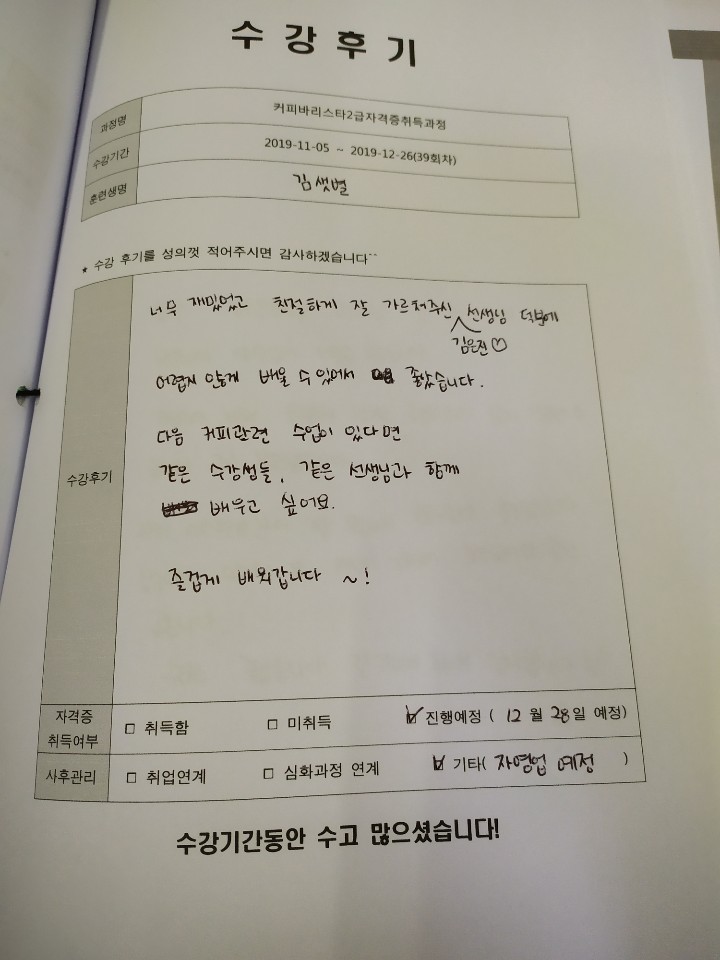 수강후기
과정명 커피바리스타2급자격증취득과정
수강기간 2019-11-05 ~ 2019-12-26(39회차)
훈련생명 김샛별
★ 수강 후기를 성의껏 적어주시면 감사하겠습니다^^
너무 재밌었고 친절하게 잘 가르쳐주신 선생님 덕분에
김은진♡
어렵지 않게 배울 수 있어서 좋았습니다.
다음 커피관련 수업이 있다면
수강후기
같은 수강생들, 같은 선생님과 함께
배우고 싶어요.
즐겁게 배워갑니다 ~!
자격증
취득여부
□ 취득함 □ 미취득 ☑ 진행예정 ( 12 월 28일 예정)
사후관리 □ 취업연계 □ 심화과정 연계 ☑ 기타( 자영업 예정 )
수강기간동안 수고 많으셨습니다!